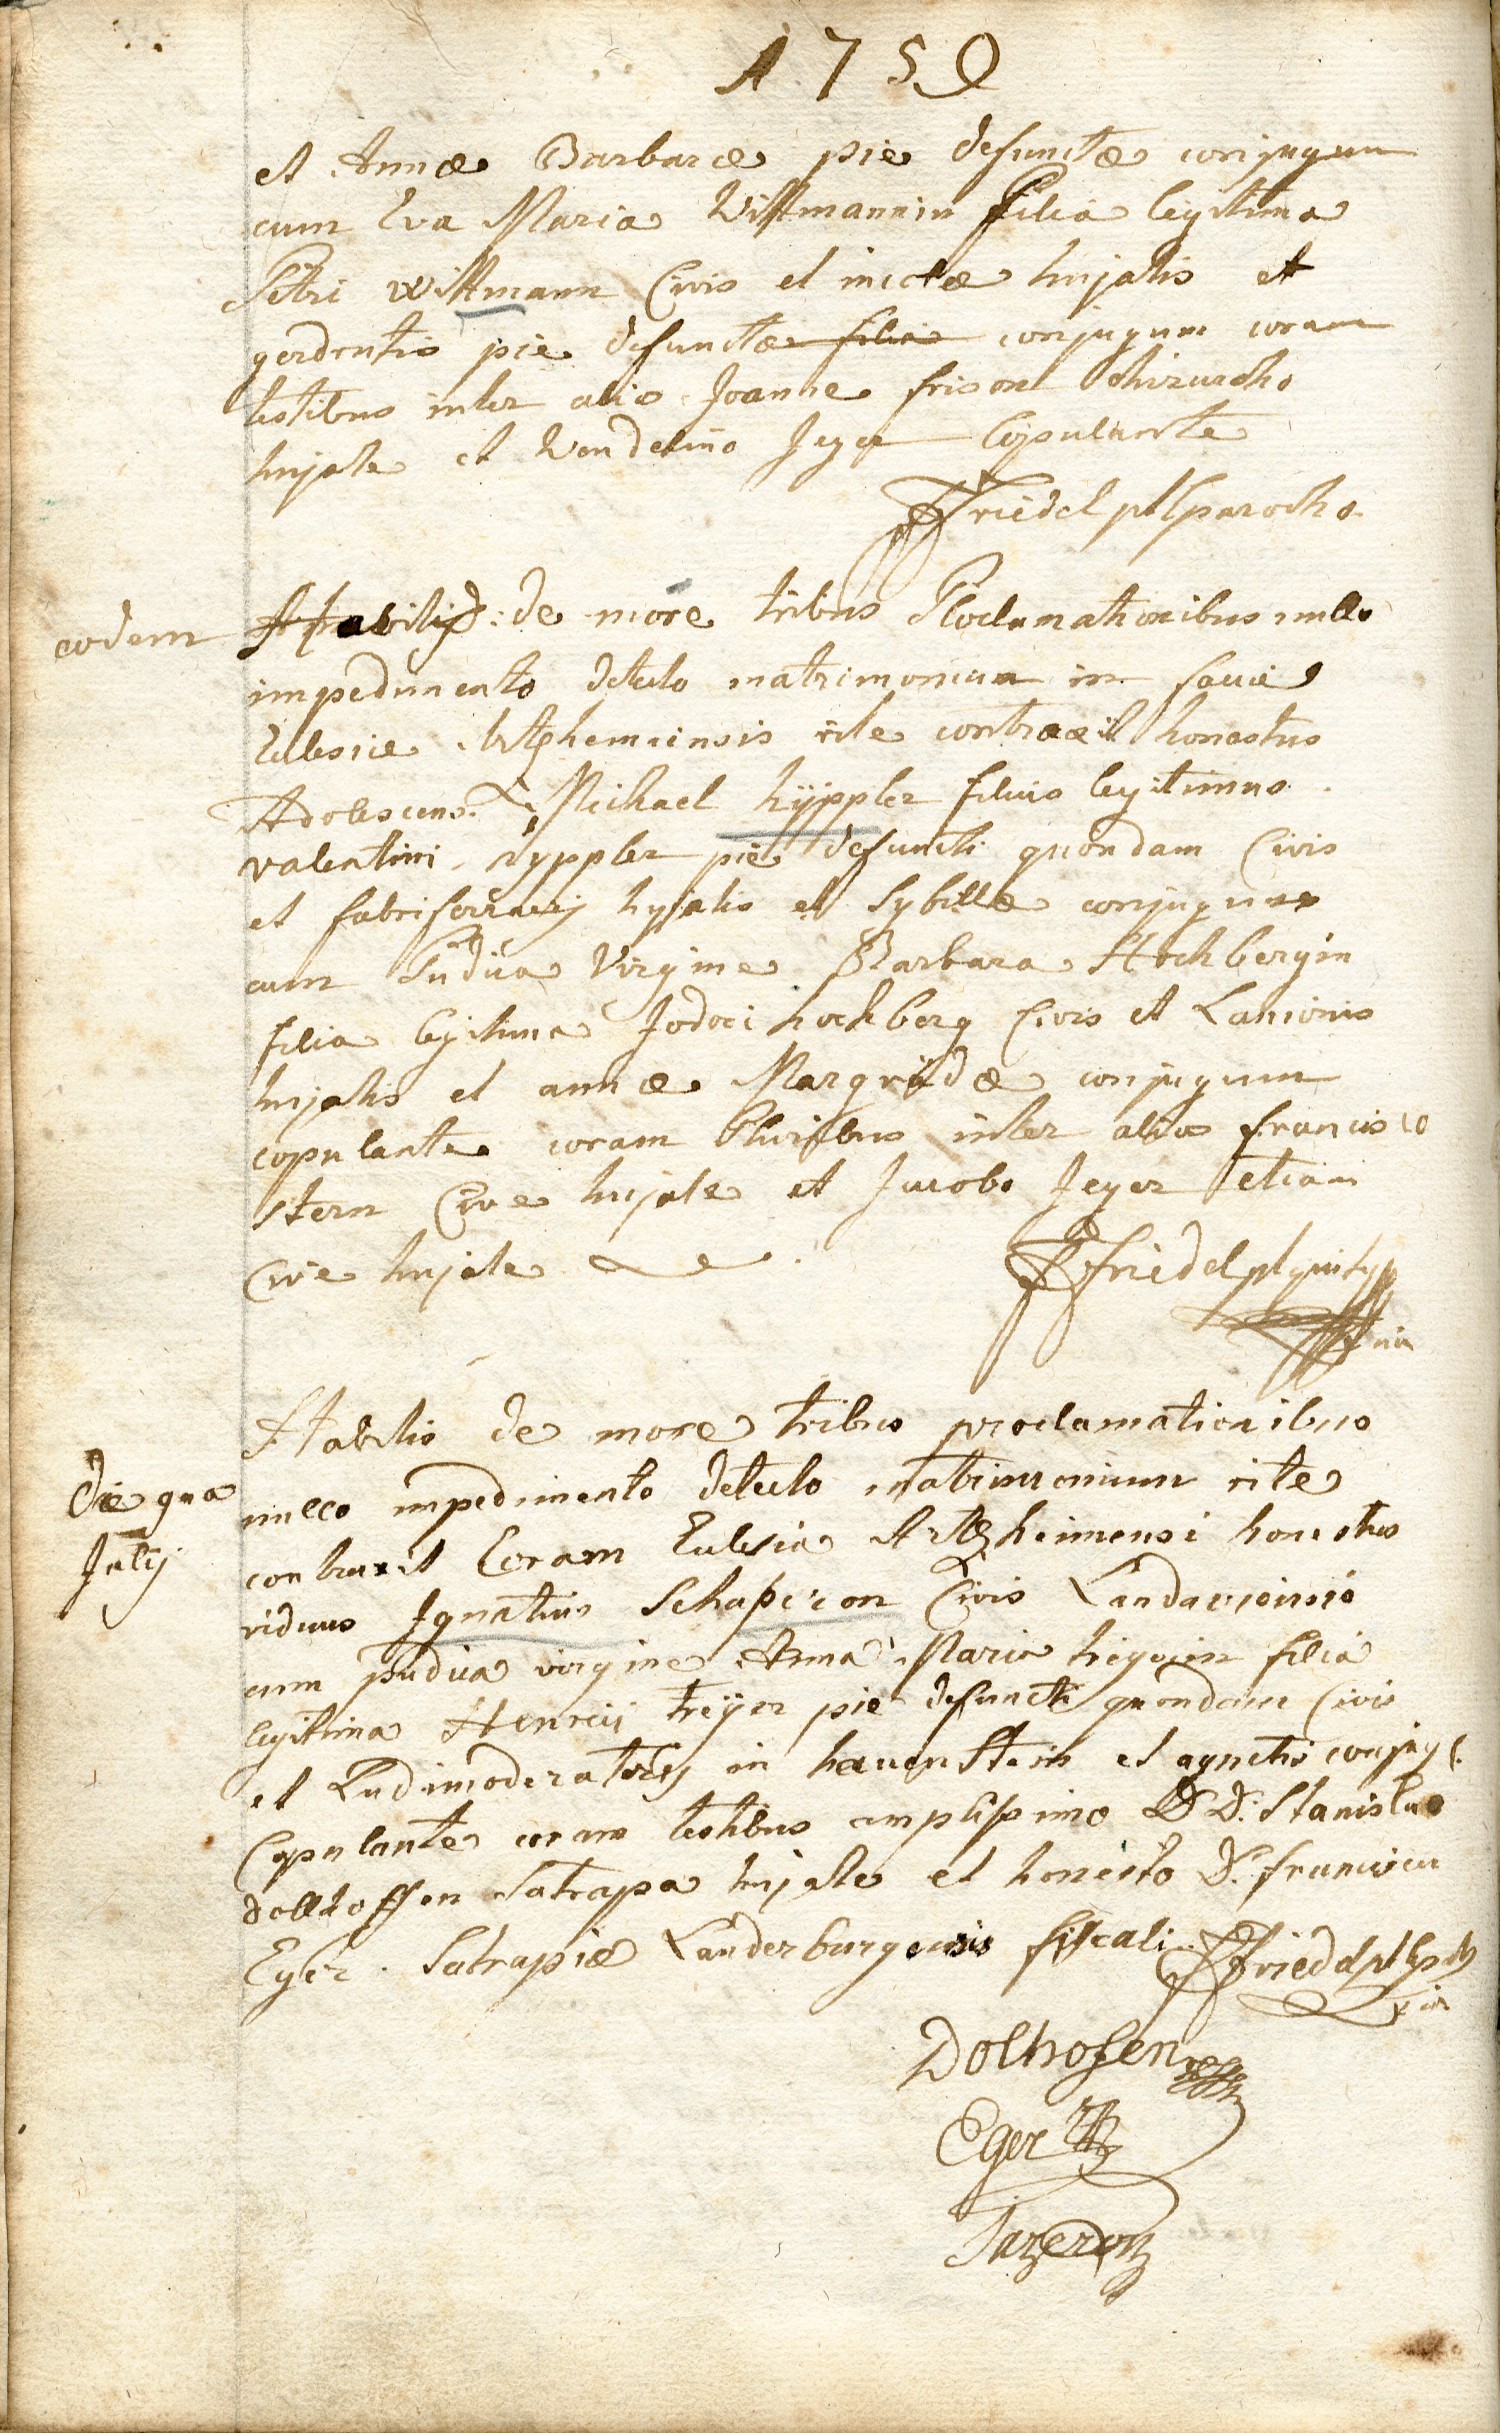 1759
et Annæ Barbaræ pie defunctæ conjugum
cum Eva Maria Wittmannin filia legitima
Petri Wittmann Civis et incolæ hujatis et
gerdrutis pie defunctæ filia conjugum coram
testibus inter alios Joanne frison Chirurcho
hujate et Wendelino Jeger Copulante
Friedel parocho
eodem
Habitis de more tribus Proclamationibus nullo
impedimento detecto matrimonium in facie
Eclesiæ Artzhemiensis rite contraxit honestus
Adolescens Michael hÿppler filius legitimus
valentini hyppler pie defuncti quondam Civis
et fabriferrarij hyjatis et Sybillæ conjugum
cum Pudica Virgine Barbara Hochbergin
filia legitima Jodoci hochberg Civis et Lanionis
hujatis et annæ Margridæ conjugum
copulante coram pluribus inter alios francisco
stern Cive hujate et Jacobo Jeger etiam
Cive hujate
Friedel
Die 9na
Julij
Habitis de more tribus proclamationibus
nullo impedimento detecto matrimonium rite
contraxit Coram Eclesia Artzheimensi honestus
viduus Ignatius Schaperon Civis Landaviensis
cum pudica virgine Anna Maria treyerin filia
legitima Henrici treÿer pie defuncti quondam Civis
et Ludimoderatoris in hauenstein et agnetis conjug:
Copulante coram testibus amplissimo D. D. Stanislao
dollhoffen Satrapa hujate et honesto D. francisco
Eger Satrapiæ Landerburgensis fiscali Friedel
Dolhofen
Eger